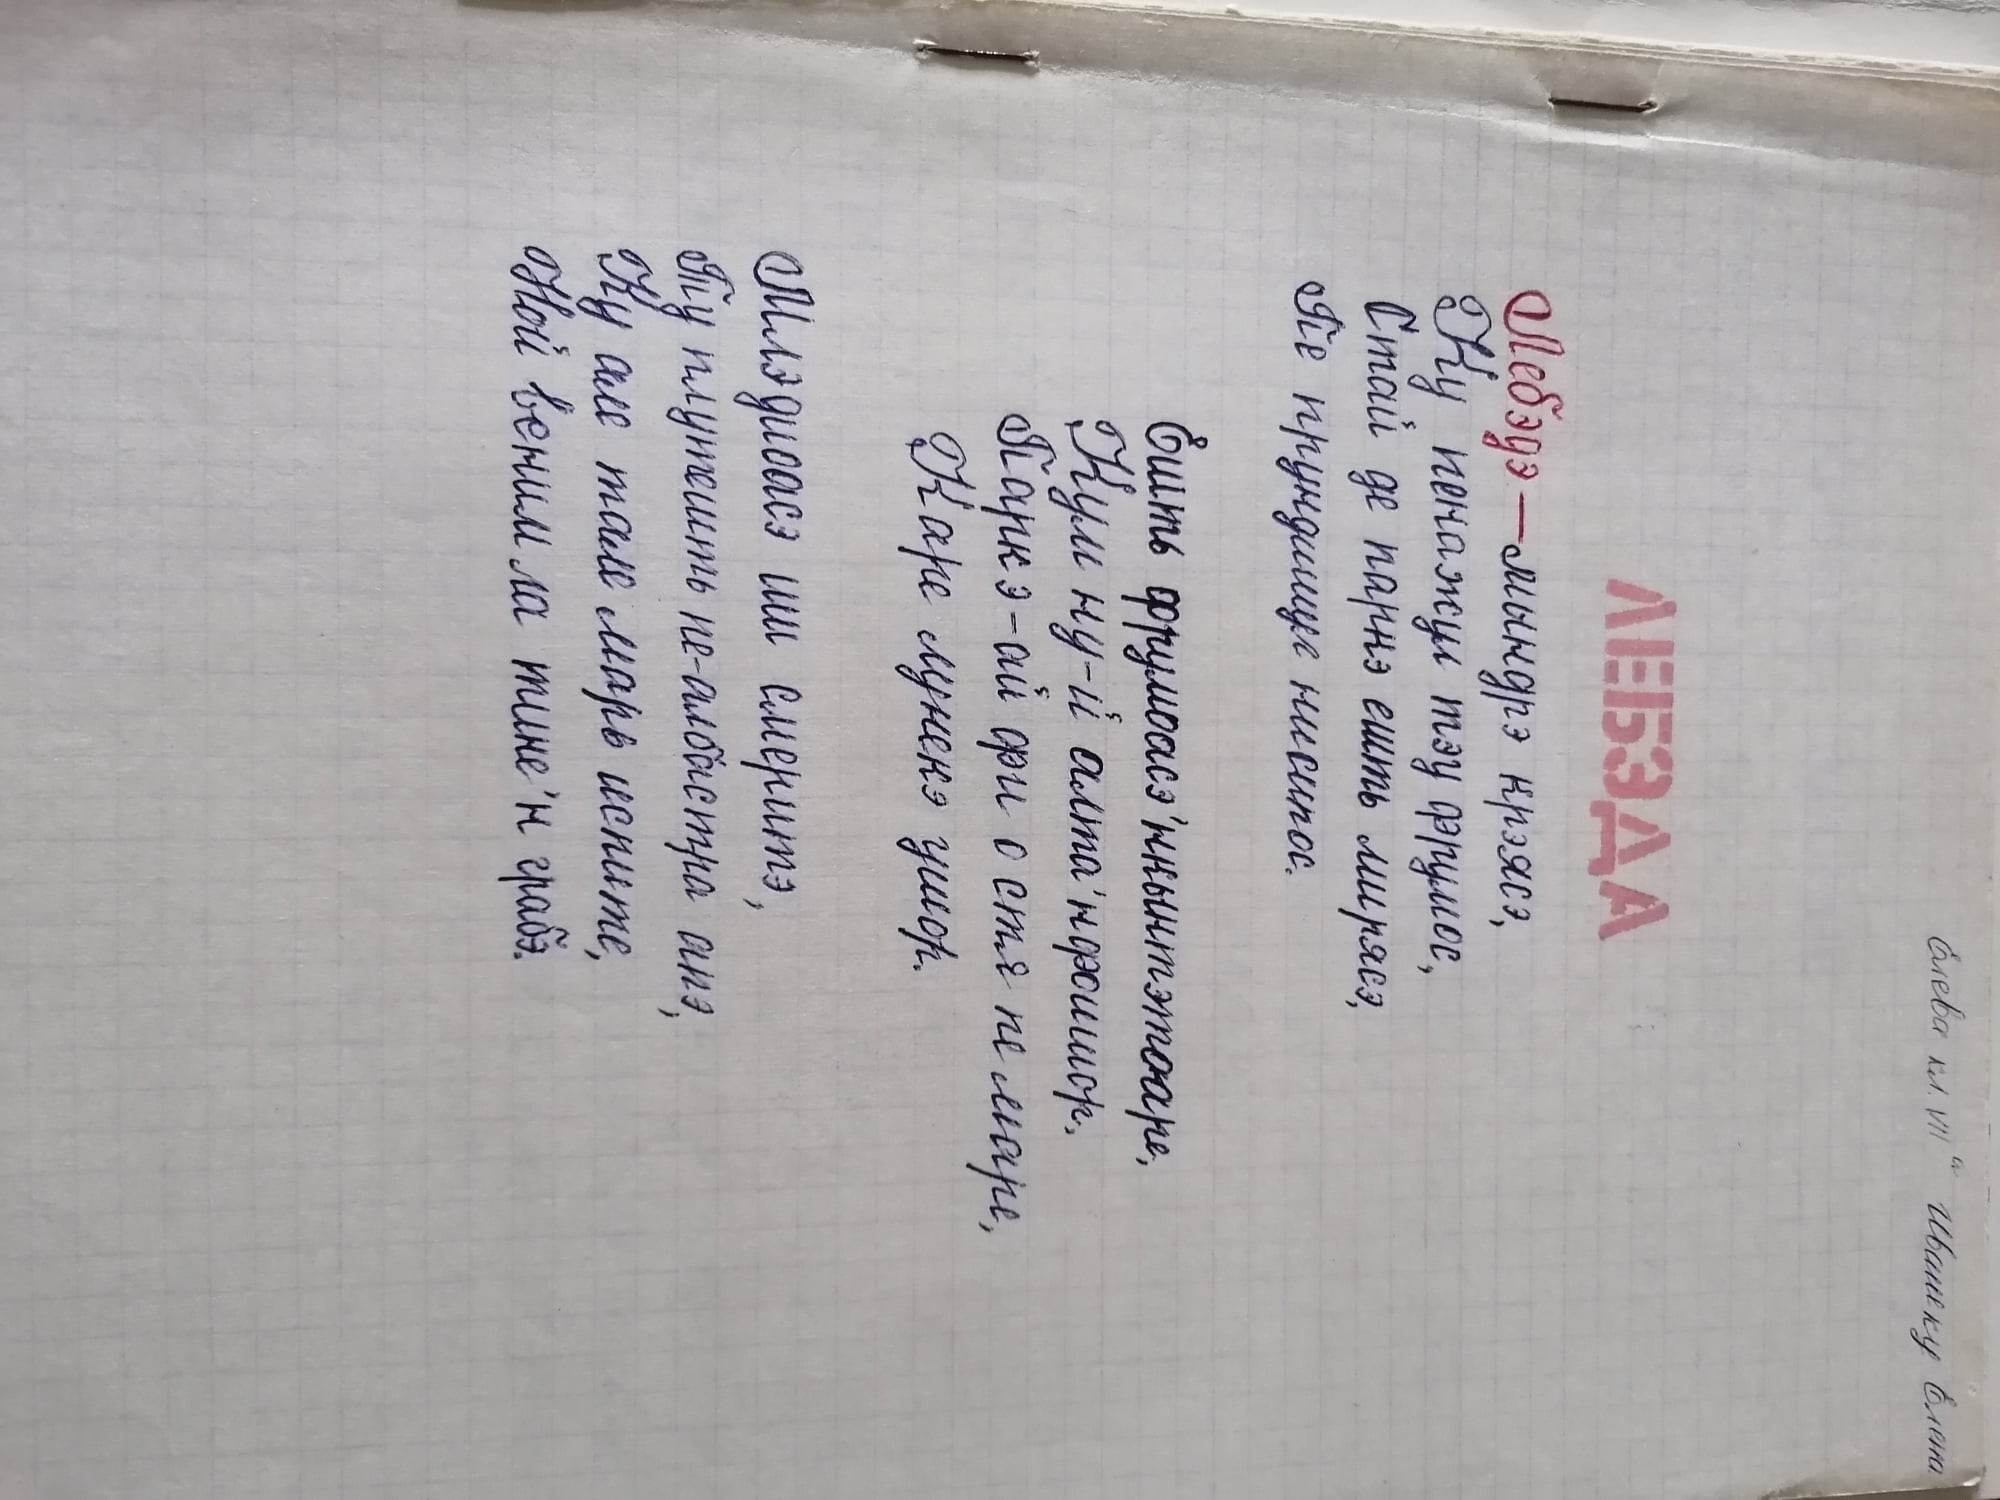 Елева кл. VII "а" Ивашку Елена
ЛЕБЭДА
Лебэдэ — мындрэ крэясэ,
Ку пенажул тэу фрумос,
Стай де паркэ ешть мирясэ,
Пе прундишул нисипос.
Ешть фрумоасэ'нкынтэтоаре,
Кум ну-й алта'нфришор,
Паркэ-ай фи о стя пе маре,
Каре лунекэ ушор.
Млэдиоасэ ши смеритэ,
Ту плутешть пе-албастра апэ,
Ку але тале марь испите,
Ной веним ла тине'н грабэ.